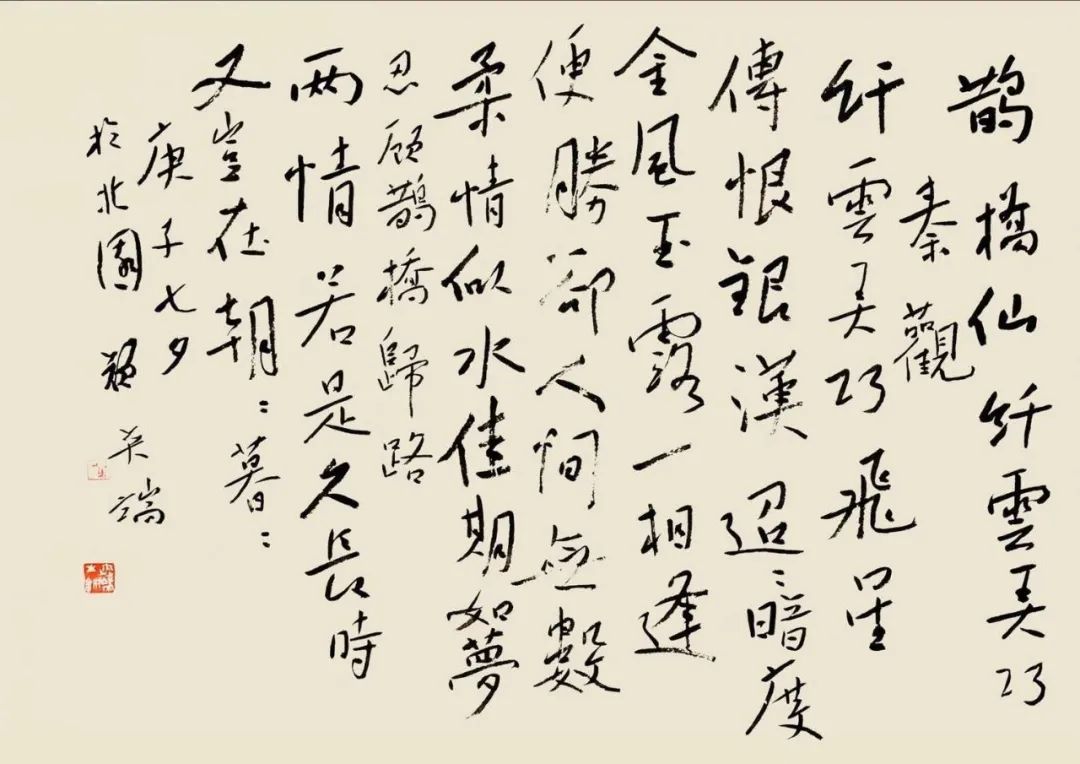 鵲橋仙纤雲弄巧
秦觀
纤雲弄巧飛星
傳恨銀漢迢〻暗度
金風玉露一相逢
便勝卻人間無數
柔情似水佳期如夢
忍顧鵲橋歸路
两情若是久長時
又豈在朝〻暮〻
庚子七夕
於北園 端